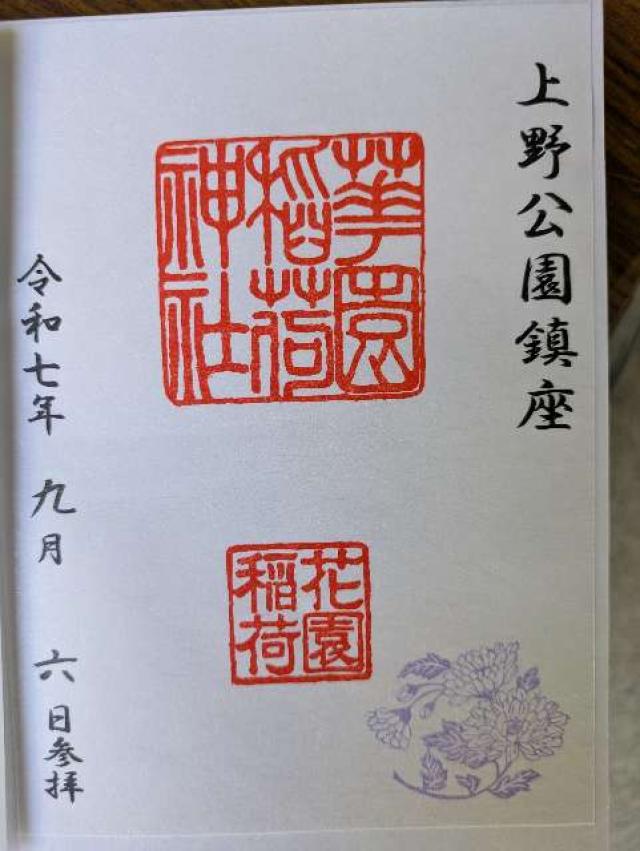 上野公園鎮座
華園
稲荷
神社
花園
稲荷
令和七年 九月 六日参拝